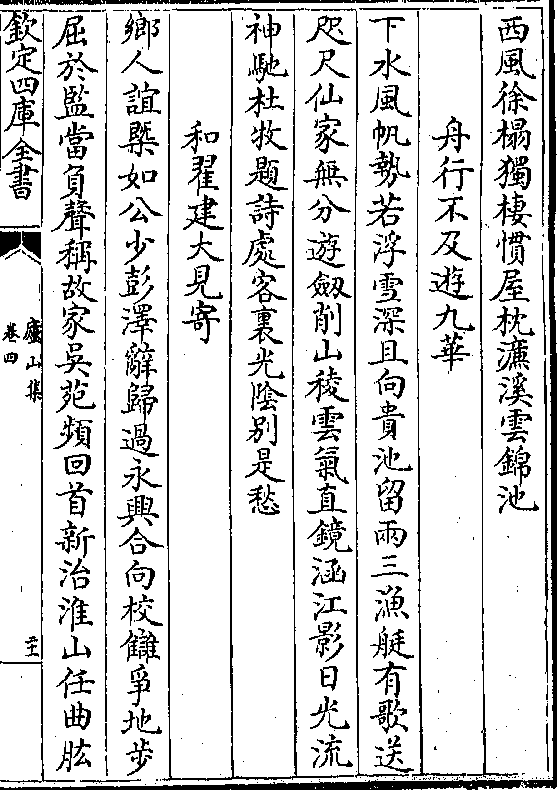 西風徐榻獨棲慣屋枕濂溪雲錦池
舟行不及遊九華
下水風帆勢若浮雪深且向貴池留兩三漁艇有歌送
咫尺仙家無分遊劔削山稜雲氣直鏡涵江影日光流
神馳杜牧題詩處客裏光隂别是愁
和翟建大見寄
鄉人誼槩如公少彭澤辭歸過永興合向校讎爭地步
屈於監當負聲稱故家吳苑頻回首新治淮山任曲肱
欽定四庫全書
廬山集
卷四